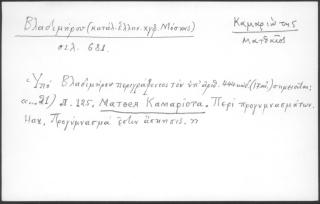 Βλαδιμήρου (κατάλ. ἑλλην. χφ. Μόσχας)
Καμαριώτης
Ματθαῖος
σελ. 681.
Ὑπὸ Βλαδιμήρου περιγράφοντος τὸν ὑπ' ἀριθ. 444 κώδ. (17 αἰ.) σημειοῦται:
21) Л. 185. Матѳея Камаріота. Περὶ προγυμνασμάτων.
Нач. Προγύμνασμά ἐστιν ἄσκησις. »